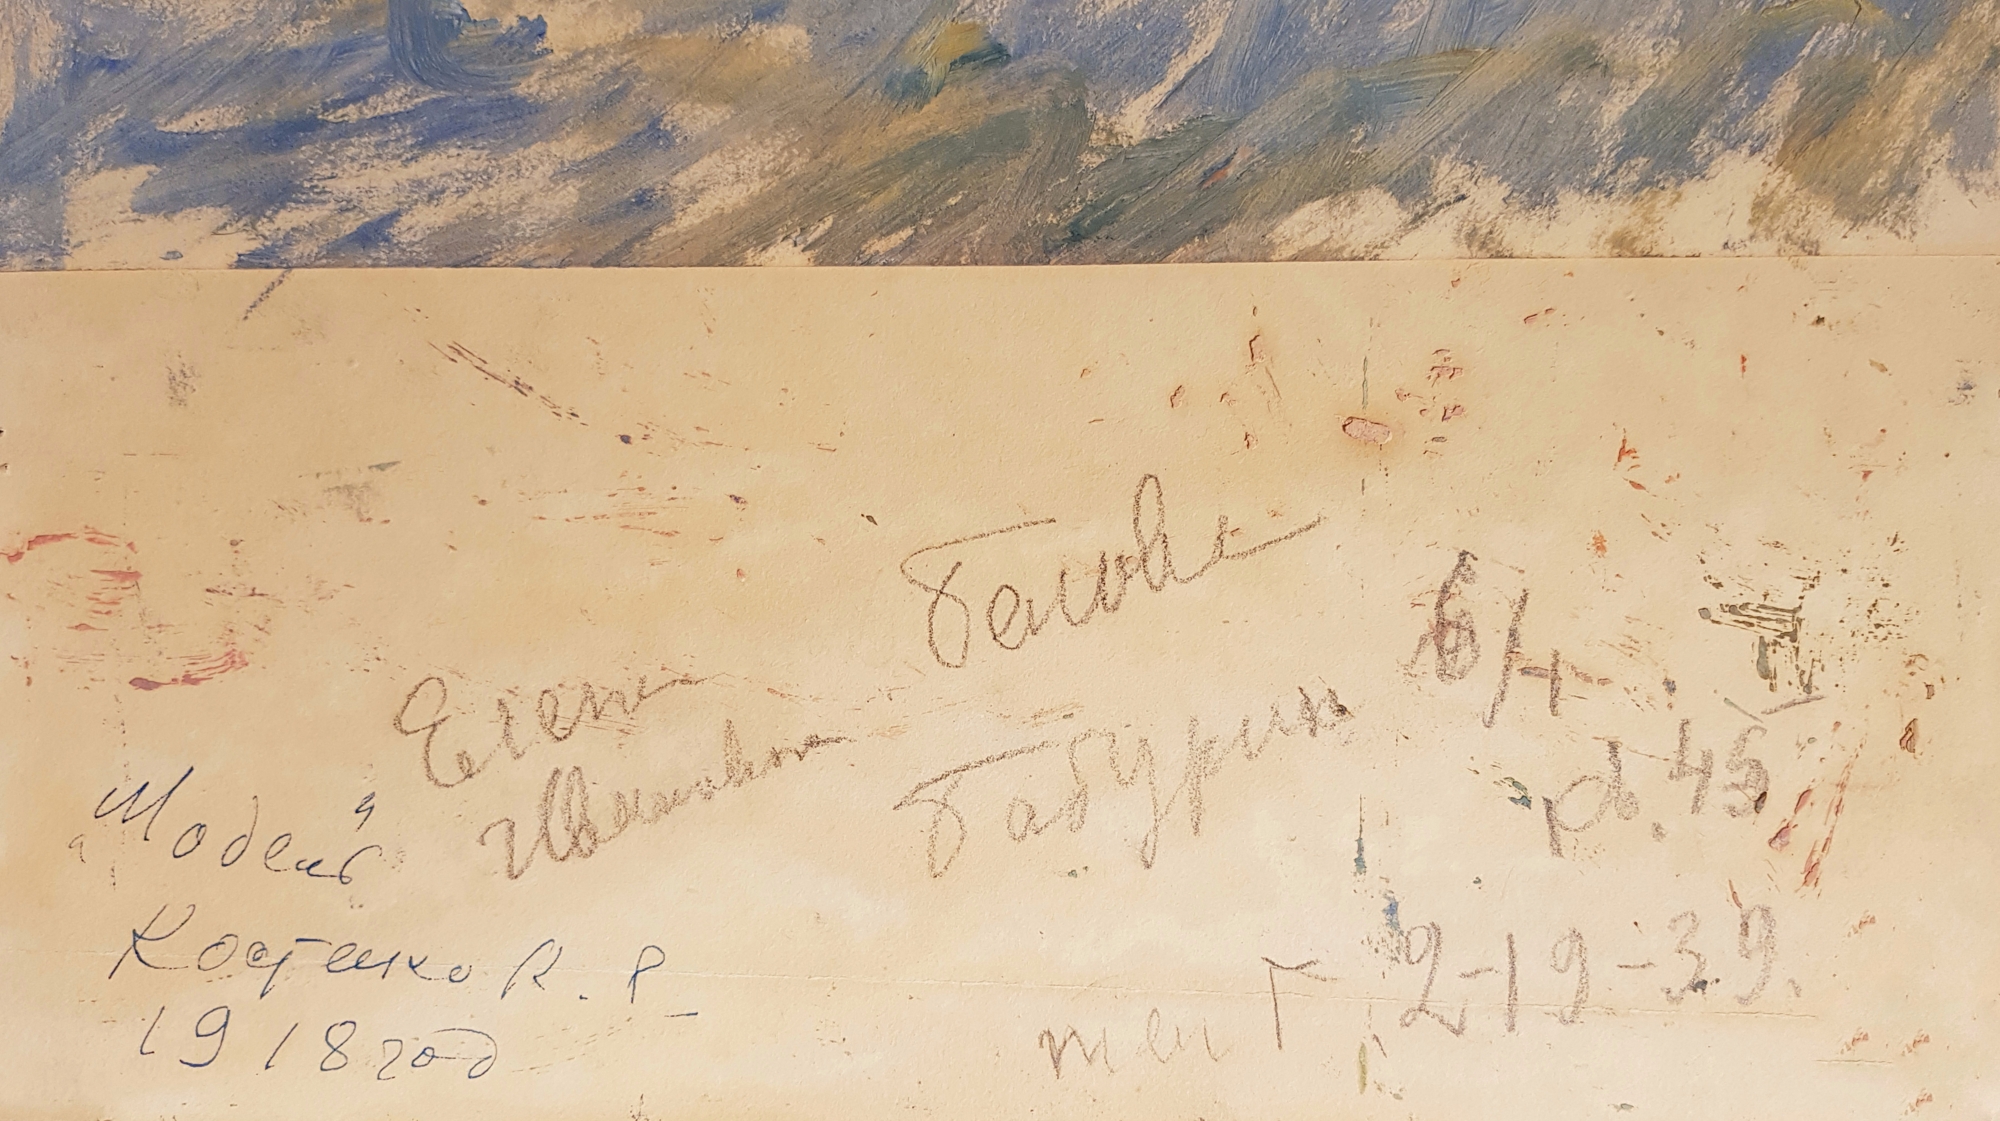 Белова
Елена
Ивановна
Бабурин 6/1
кв. 45
тел Г-2-19-39.
"Модель"
Костенко К. Р
1918 год